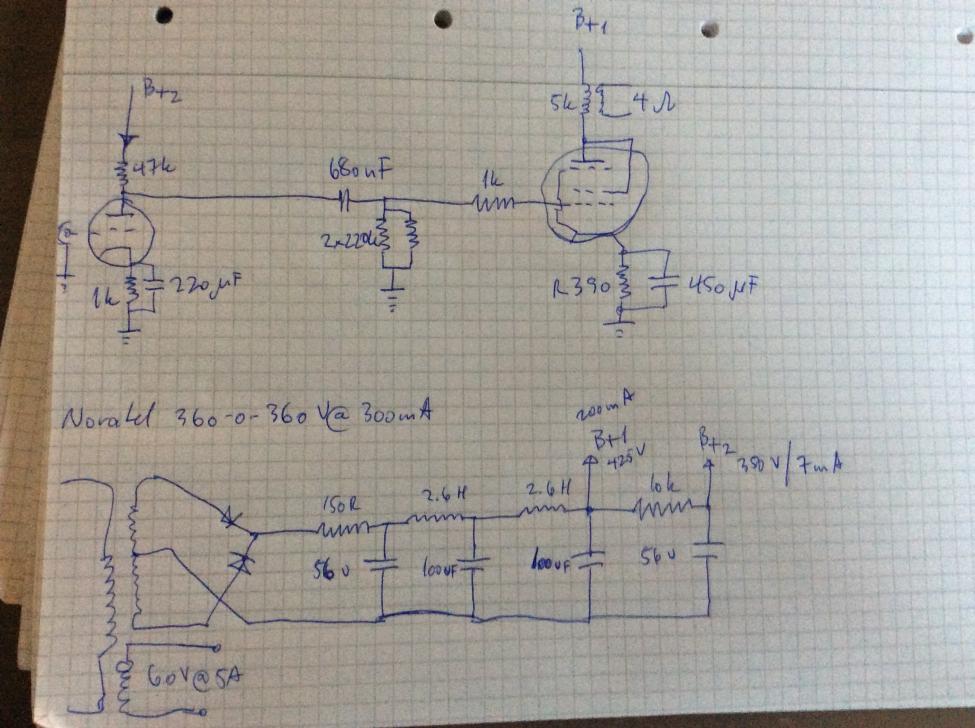 B+1
B+2
5k
4Ω
47k
680nF
1k
2x220k
1k
220µF
R390
450µF
360-0-360 V@ 300mA
200mA
B+1
425V
B+2
350V/7mA
150R
2.6H
2.6H
10k
56u
100uF
100uF
56u
60V@5A